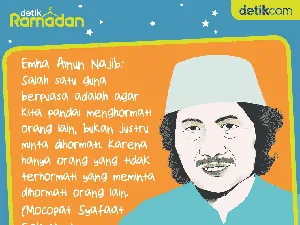 detik
Ramadan
detikcom
Emha Ainun Najib:
Salah satu guna
berpuasa adalah agar
kita pandai menghormati
orang lain, bukan justru
minta dihormati. Karena
hanya orang yang tidak
terhormat yang meminta
dihormati orang lain.
(Mocopat Syafaat